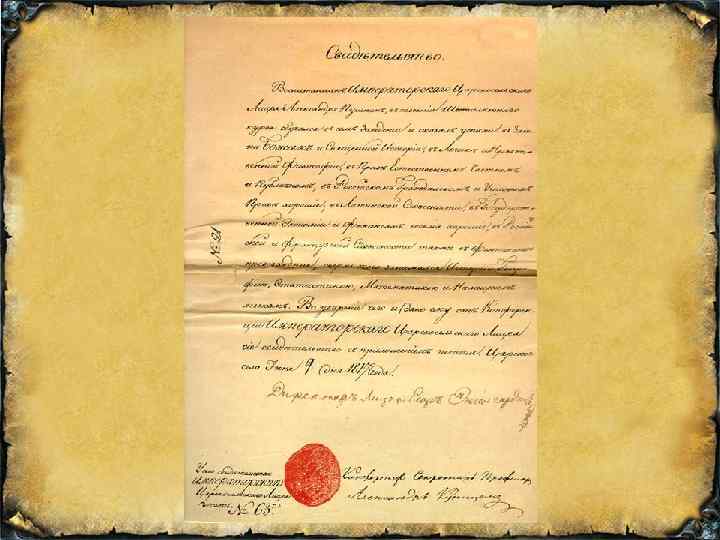 Свидѣтельство.
Воспитанникъ Императорскаго Царскосельскаго
Лицея Александръ Пушкинъ, въ теченіи шестилѣтняго
курса обучался въ семъ заведеніи и оказалъ успѣхи: въ Зако-
нѣ Божіемъ и Священной Исторіи, въ Логикѣ и Нравст-
венной Философіи, въ Правѣ Естественномъ, Частномъ
и Публичномъ, въ Россійскомъ Гражданскомъ и Уголовномъ
Правѣ хорошіе; въ Латинской Словесности, въ Государст-
венной Економіи и Финансахъ весьма хорошіе; въ Россій-
ской и Французской Словесности также въ Фехтованіи
превосходные; сверхъ того занимался Исторіею, Геогра-
фіею, Статистикою, Математикою и Нѣмецкимъ
языкомъ. Во увѣреніе чего и дано ему отъ Конферен-
ціи Императорскаго Царскосельскаго Лицея
сіе свидѣтельство съ приложеніемъ печати. Царское
село Іюня 9 дня 1817 года.
Директоръ Лицея Егоръ Энгельгардтъ
№
Императорскаго
Царскосельскаго Лицея
печать. №
Конференцъ Секретарь Профессоръ
Александръ Куницынъ